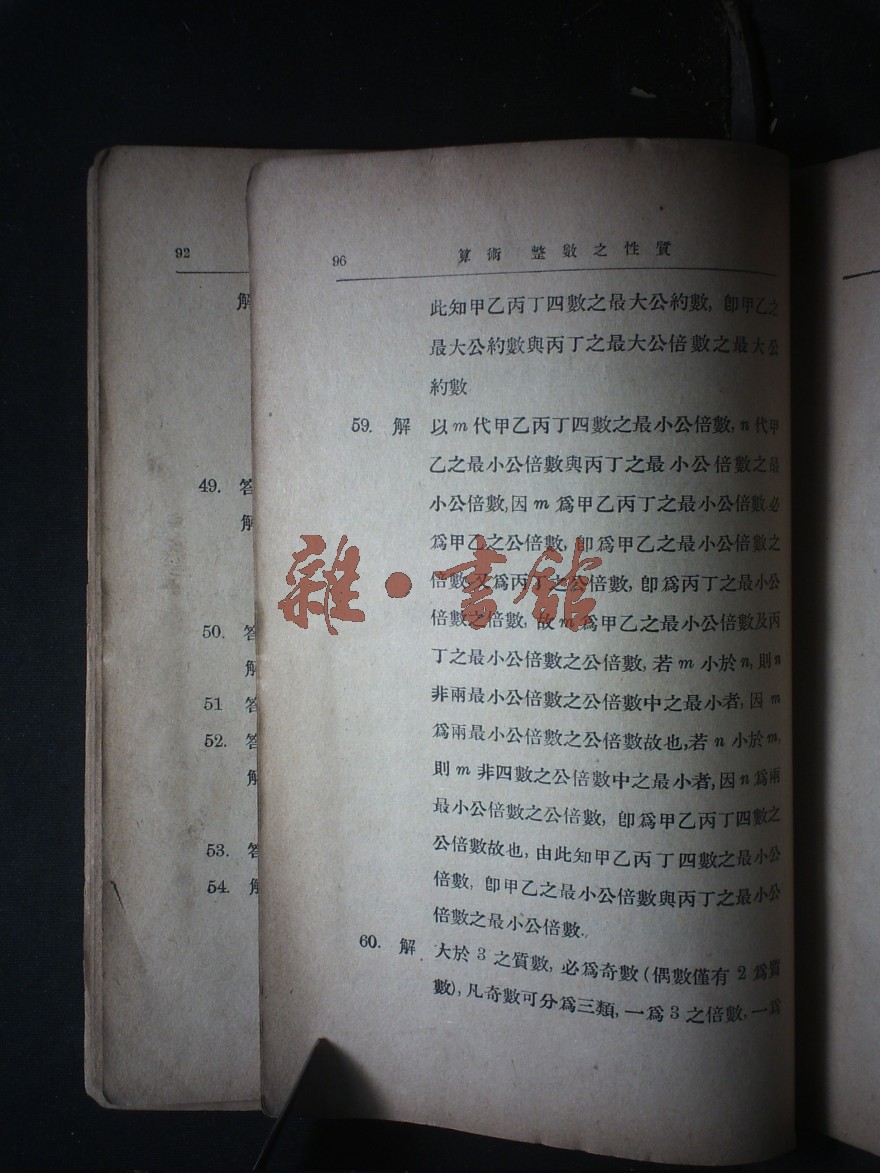 92
解
49. 答
解
50. 答
解
51 答
52. 答
解
53. 答
54. 解
96 算術 整數之性質
此知甲乙丙丁四數之最大公約數, 卽甲乙之
最大公約數與丙丁之最大公倍數之最大公
約數
59. 解 以m代甲乙丙丁四數之最小公倍數, n代甲
乙之最小公倍數與丙丁之最小公倍數之最
小公倍數, 因m爲甲乙丙丁之最小公倍數必
爲甲乙之公倍數, 卽爲甲乙之最小公倍數之
倍數, 又爲丙丁之公倍數, 卽爲丙丁之最小公
倍數之倍數, 故m爲甲乙之最小公倍數及丙
丁之最小公倍數之公倍數, 若m小於n, 則n
非兩最小公倍數之公倍數中之最小者, 因m
爲兩最小公倍數之公倍數故也, 若n小於m,
則m非四數之公倍數中之最小者, 因n爲兩
最小公倍數之公倍數, 卽爲甲乙丙丁四數之
公倍數故也, 由此知甲乙丙丁四數之最小公
倍數, 卽甲乙之最小公倍數與丙丁之最小公
倍數之最小公倍數.
60. 解 大於3之質數, 必爲奇數(偶數僅有2爲質
數), 凡奇數可分爲三類, 一爲3之倍數, 一爲
雜·書館